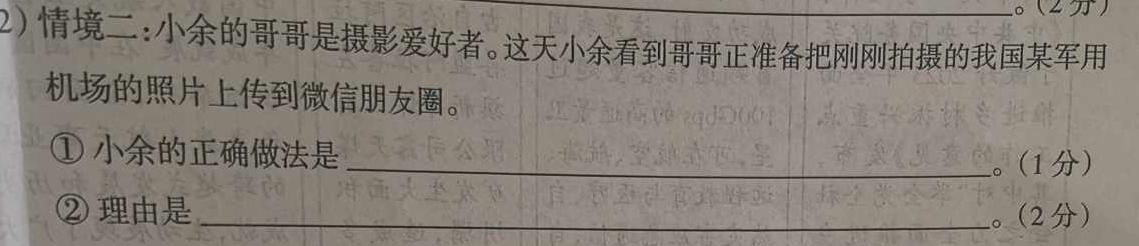 。(2分)
2)情境二:小余的哥哥是摄影爱好者。这天小余看到哥哥正准备把刚刚拍摄的我国某军用
机场的照片上传到微信朋友圈。
①小余的正确做法是。(1分)
②理由是。(2分)